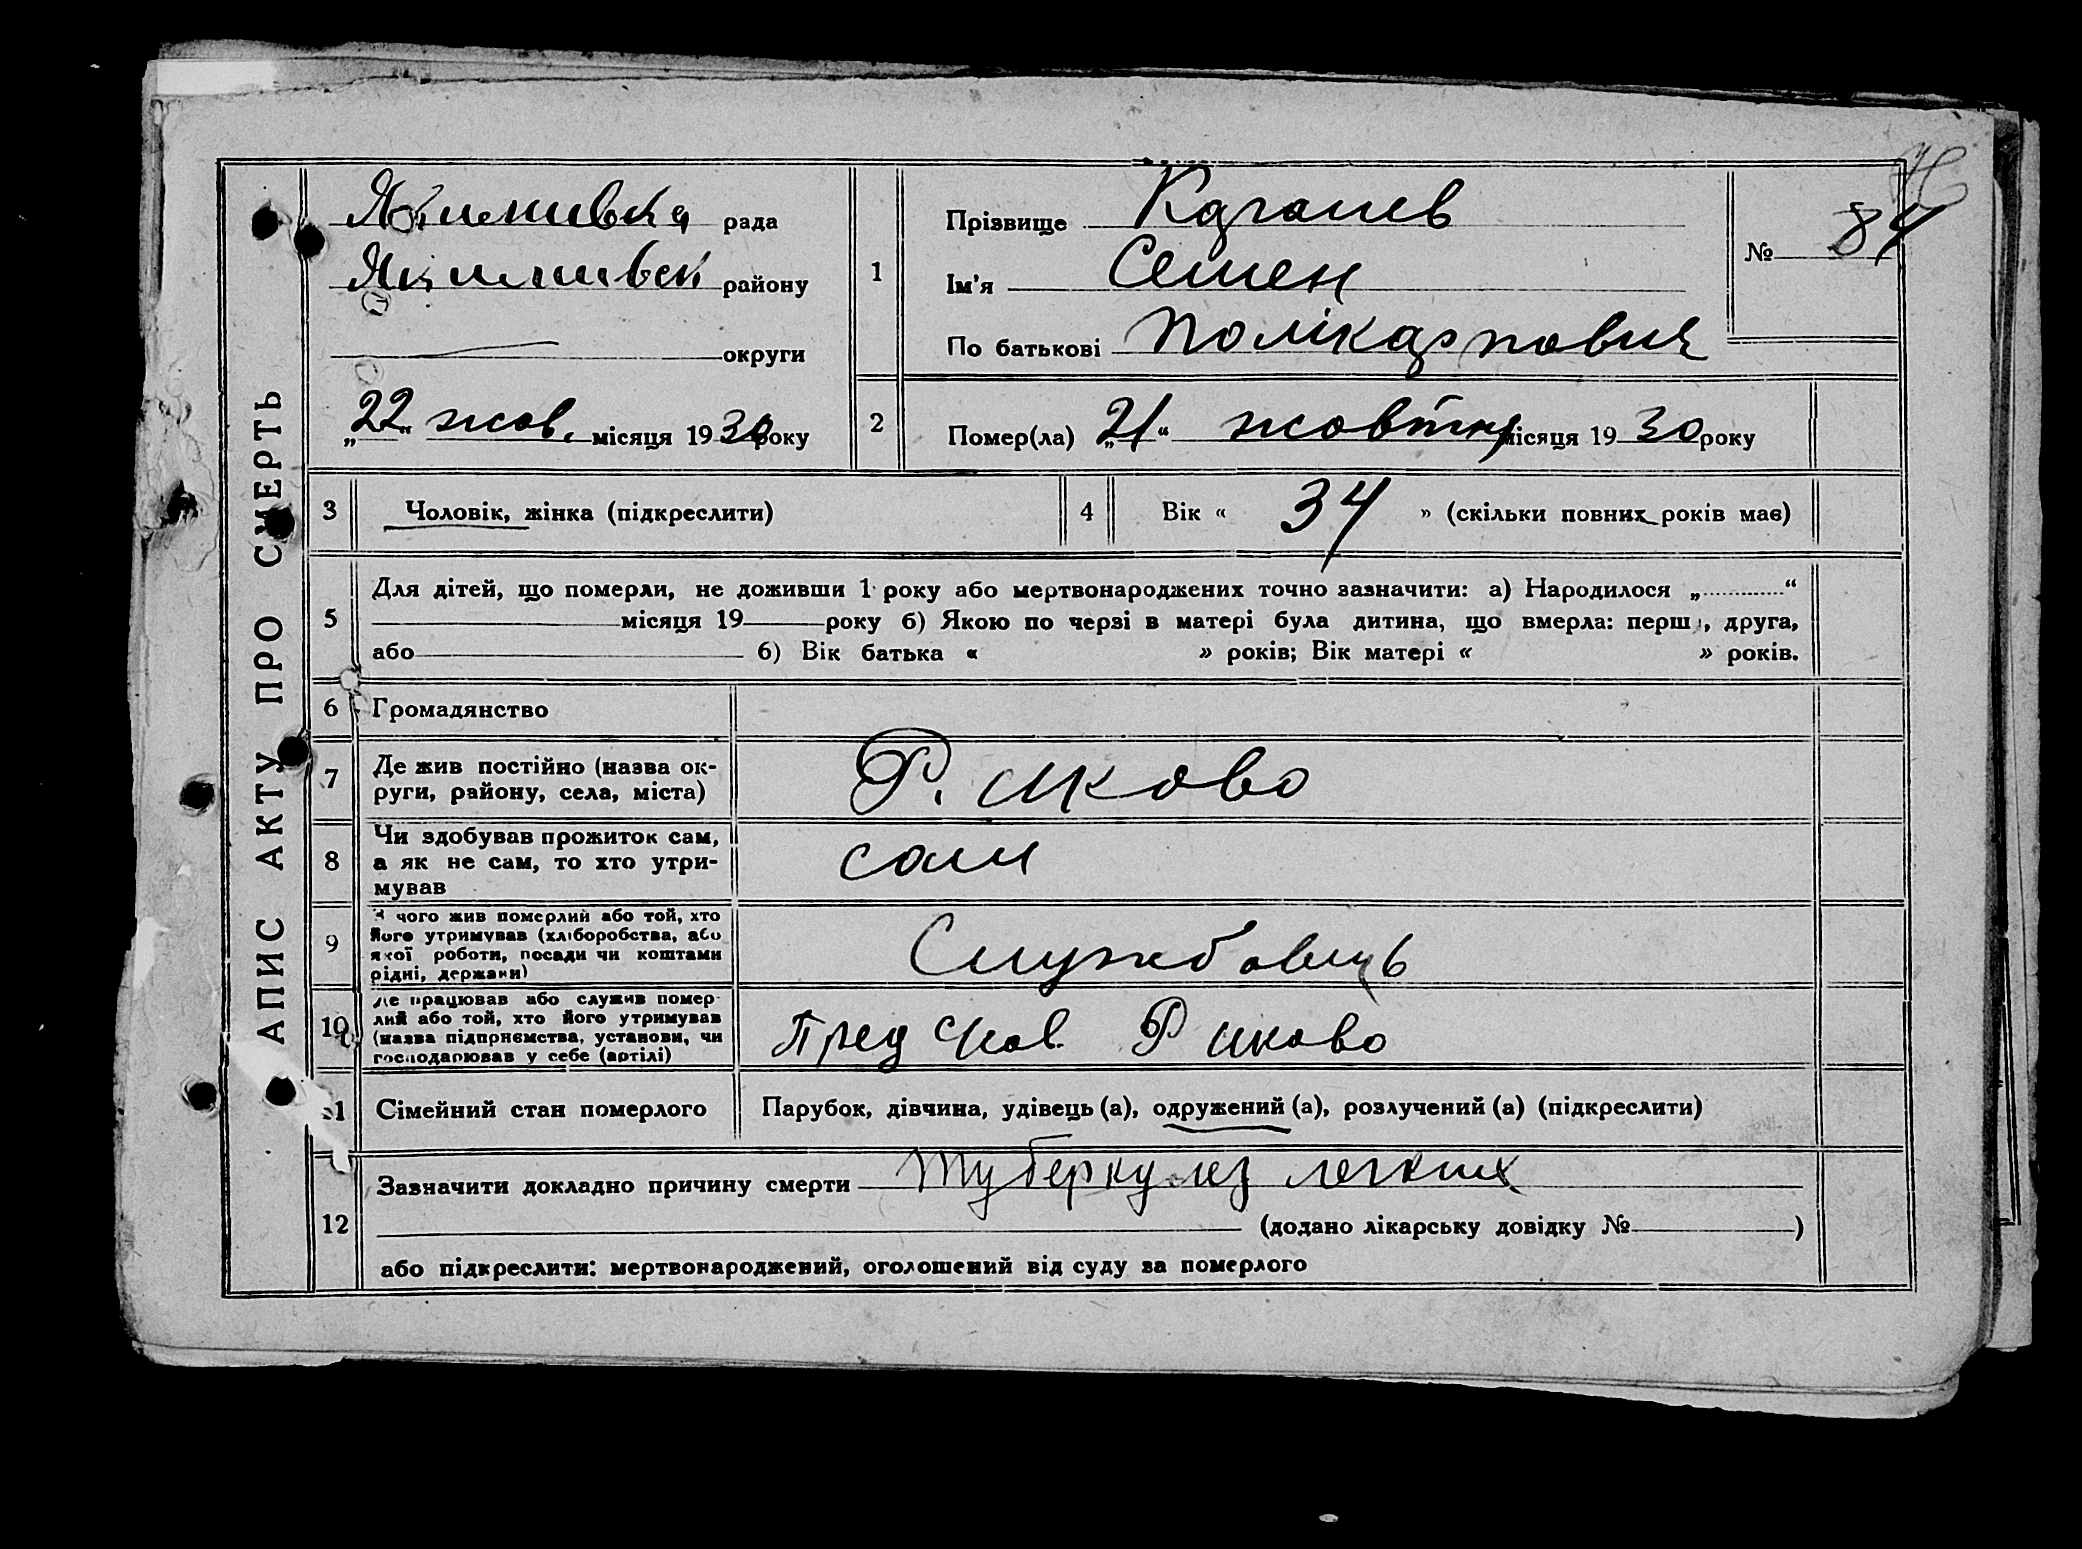 АПИС АКТУ ПРО СМЕРТЬ
Якимивка рада
Якимивск району
округи
„22“ жов. місяця 1930 року
1
Прізвище
Ім'я Семен
По батькові Полікарпович
№ 84
2 Помер(ла) „21“ жовтня місяця 1930 року
3 Чоловік, жінка (підкреслити)
4 Вік « 34 » (скільки повних років має)
5 Для дітей, що померли, не доживши 1 року або мертвонароджених точно зазначити: а) Народилося „ “
місяця 19 року б) Якою по черзі в матері була дитина, що вмерла: перш , друга,
або б) Вік батька « » років; Вік матері « » років.
6 Громадянство
7 Де жив постійно (назва ок-
руги, району, села, міста)
Р. иково
8 Чи здобував прожиток сам,
а як не сам, то хто утри-
мував
сам
9 З чого жив померлий або той, хто
його утримував (хліборобства, або
якої роботи, посади чи коштами
рідні, держави)
Службовиць
10 Де працював або служив помер-
лий або той, хто його утримував
(назва підприємства, установи, чи
господарював у себе (артілі)
Пред Р иково
11 Сімейний стан померлого
Парубок, дівчина, удівець (а), одружений (а), розлучений (а) (підкреслити)
12 Зазначити докладно причину смерти туберкулез легких
(додано лікарську довідку № )
або підкреслити: мертвонароджений, оголошений від суду за померлого